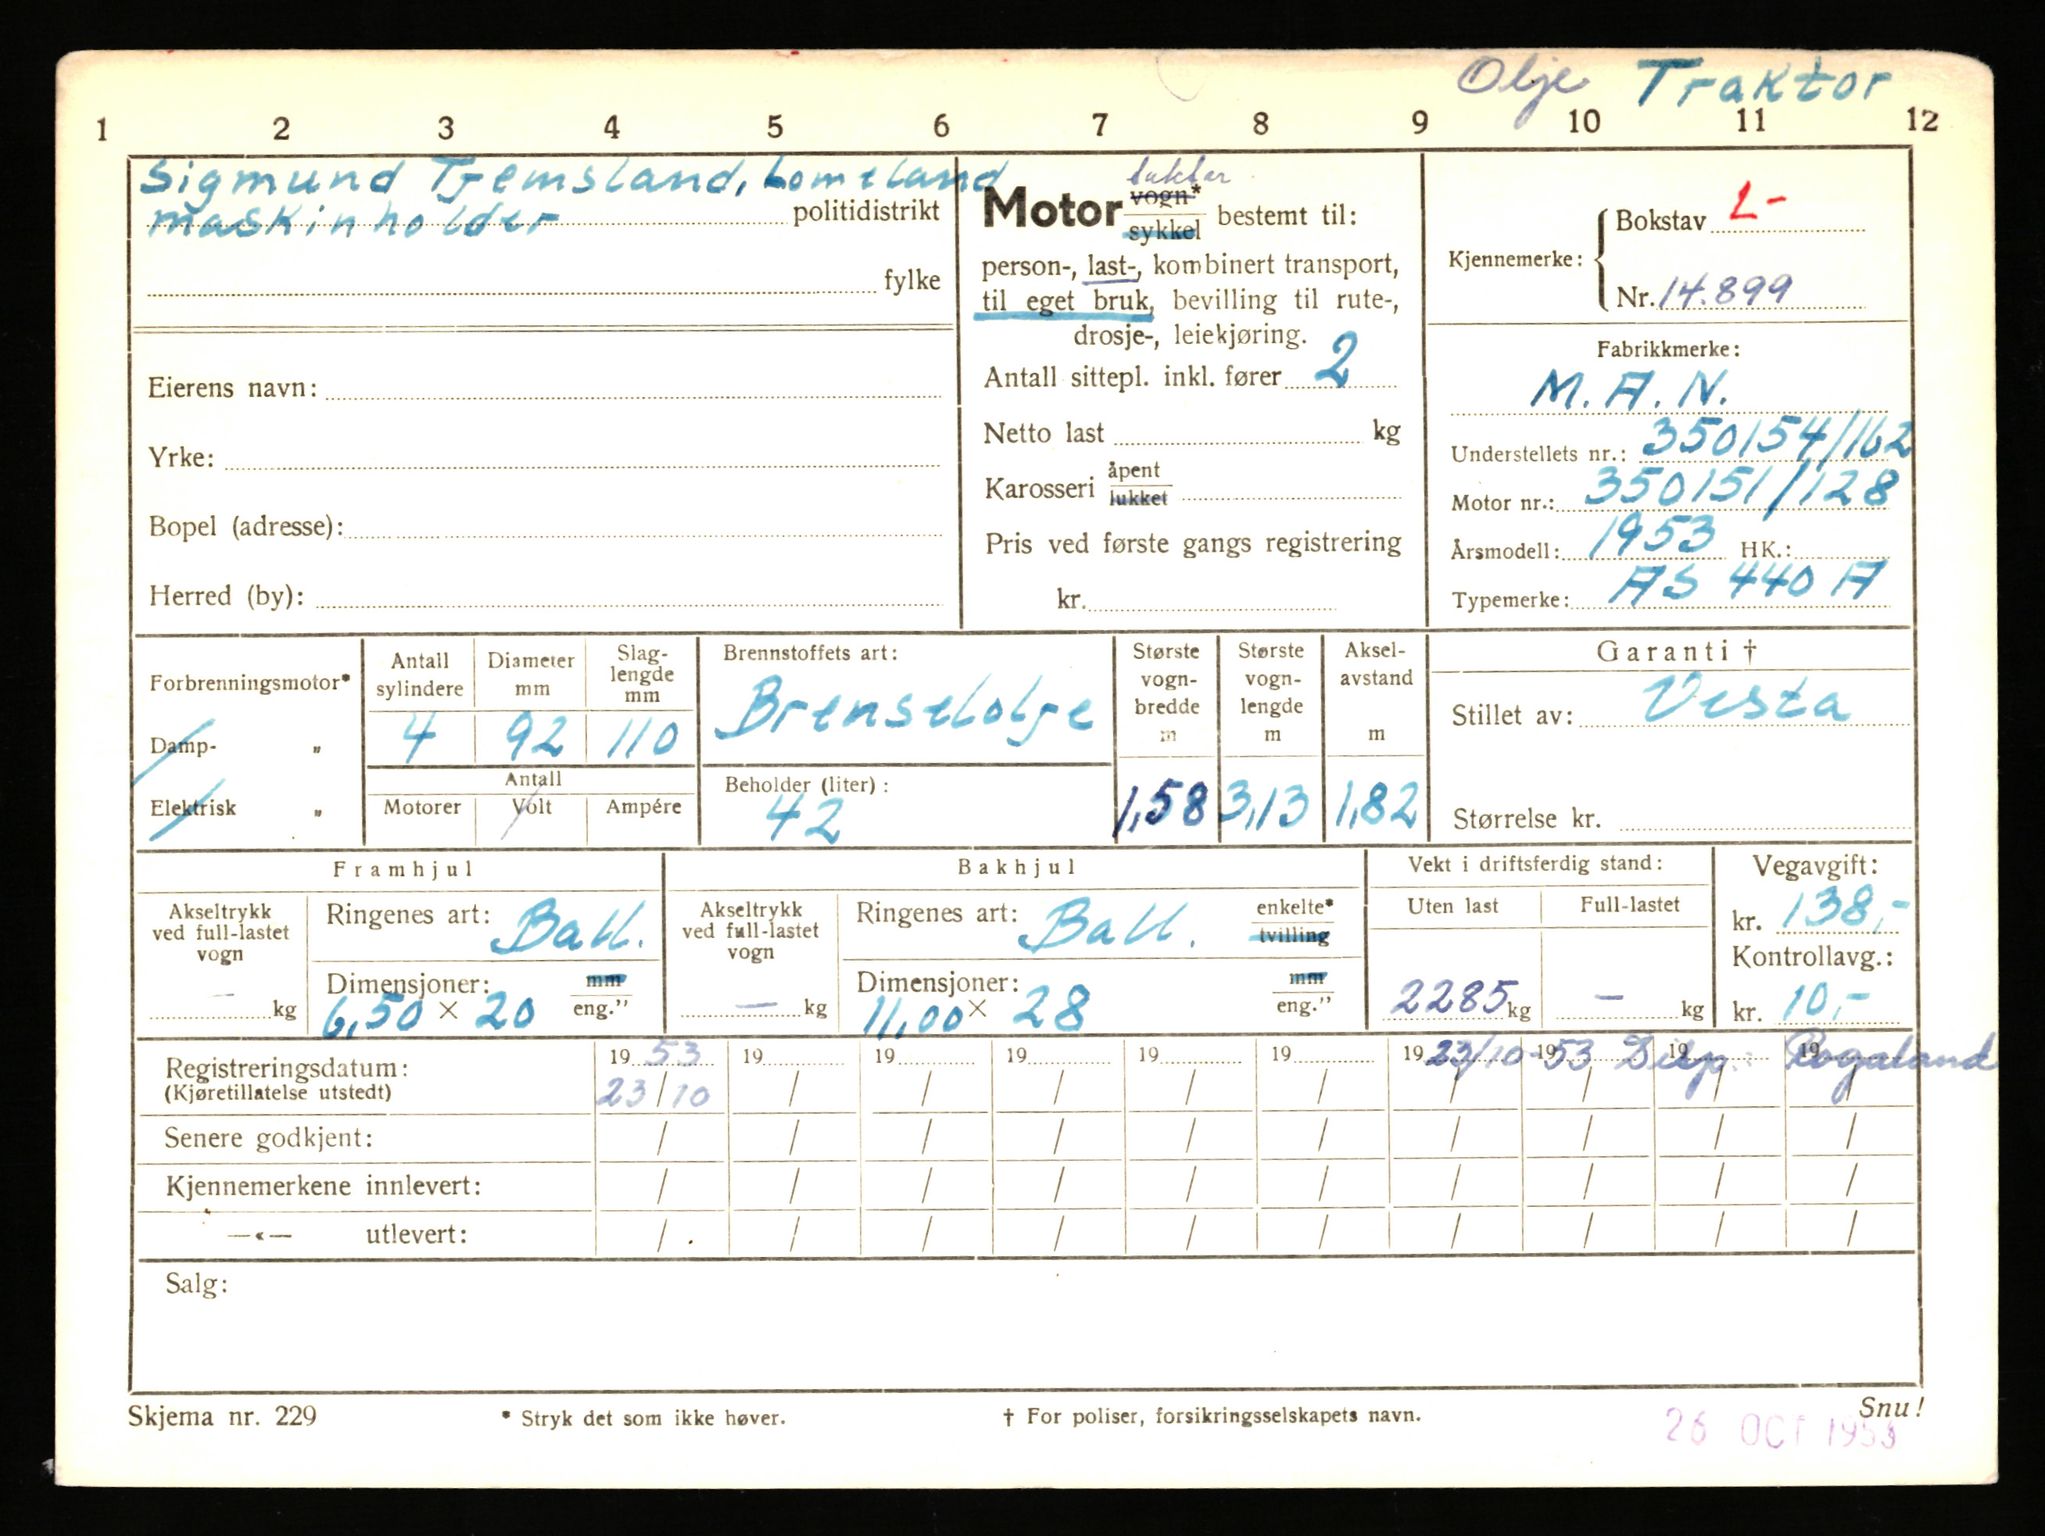 Olje Traktor
1 2 3 4 5 6 7 8 9 10 11 12
Sigmund Tjemsland, Lomeland
maskinholder politidistrikt
fylke
Eierens navn:
Yrke:
Bopel (adresse):
Herred (by):
traktor
Motor vogn* sykkel bestemt til:
person-, last-, kombinert transport,
til eget bruk, bevilling til rute-,
drosje-, leiekjøring.
Antall sittepl. inkl. fører 2
Netto last kg
Karosseri åpent lukket
Pris ved første gangs registrering
kr.
Kjennemerke: Bokstav L-
Nr. 14.899
Fabrikkmerke:
M. A. N.
Understellets nr.: 350154/162
Motor nr.: 350151/128
Årsmodell: 1953 HK.:
Typemerke: AS 440 A
Forbrenningsmotor*
Damp- „
Elektrisk „
Antall sylindere 4
Diameter mm 92
Slaglengde mm 110
Antall
Motorer Volt Ampére
Brennstoffets art:
Brenselolje
Beholder (liter):
42
Største vognbredde m 1,58
Største vognlengde m 3,13
Akselavstand m 1,82
Garanti †
Stillet av: Vesta
Størrelse kr.
Framhjul
Akseltrykk ved full-lastet vogn
— kg
Ringenes art: Ball.
Dimensjoner: mm
6,50 × 20 eng."
Bakhjul
Akseltrykk ved full-lastet vogn
— kg
Ringenes art: Ball. enkelte* tvilling
Dimensjoner: mm
11,00 × 28 eng."
Vekt i driftsferdig stand:
Uten last Full-lastet
2285 kg — kg
Vegavgift:
kr. 138,-
Kontrollavg.:
kr. 10,-
Registreringsdatum: 19 53 19 19 19 19 19 19 19 19 19 23/10-53 Disp. Rogaland
(Kjøretillatelse utstedt) 23/10 / / / / / / / / /
Senere godkjent: / / / / / / / / / /
Kjennemerkene innlevert: / / / / / / / / / /
—«— utlevert: / / / / / / / / / /
Salg:
Skjema nr. 229 * Stryk det som ikke høver. † For poliser, forsikringsselskapets navn. Snu!
26 OCT 1953